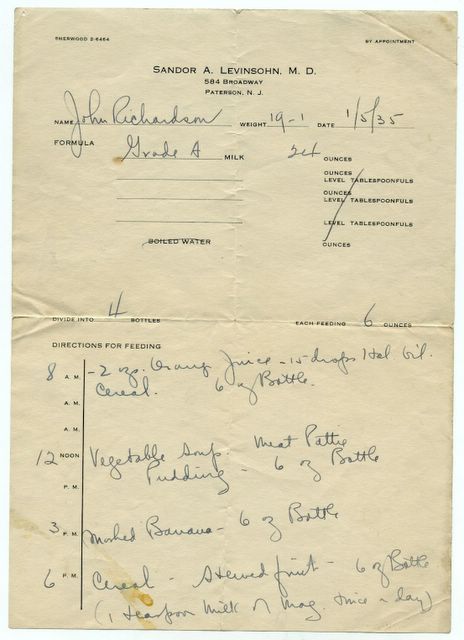 SHERWOOD 2-6464 BY APPOINTMENT
SANDOR A. LEVINSOHN, M. D.
584 BROADWAY
PATERSON, N. J.
NAME John Richardson WEIGHT 19-1 DATE 1/5/35
FORMULA
Grade A MILK 24 OUNCES
OUNCES
LEVEL TABLESPOONFULS
OUNCES
LEVEL TABLESPOONFULS
LEVEL TABLESPOONFULS
BOILED WATER OUNCES
DIVIDE INTO 4 BOTTLES EACH FEEDING 6 OUNCES
DIRECTIONS FOR FEEDING
8 A. M. - 2 ozs. Orange Juice - 15 drops Hal. Oil.
Cereal. 6 oz Bottle.
A. M.
A. M.
12 NOON Vegetable Soup. Meat Pattie
Pudding - 6 oz Bottle
P. M.
3 P. M. Mashed Banana - 6 oz Bottle
6 P. M. Cereal - Stewed fruit - 6 oz Bottle
(1 teaspoon Milk of Mag. twice a day)